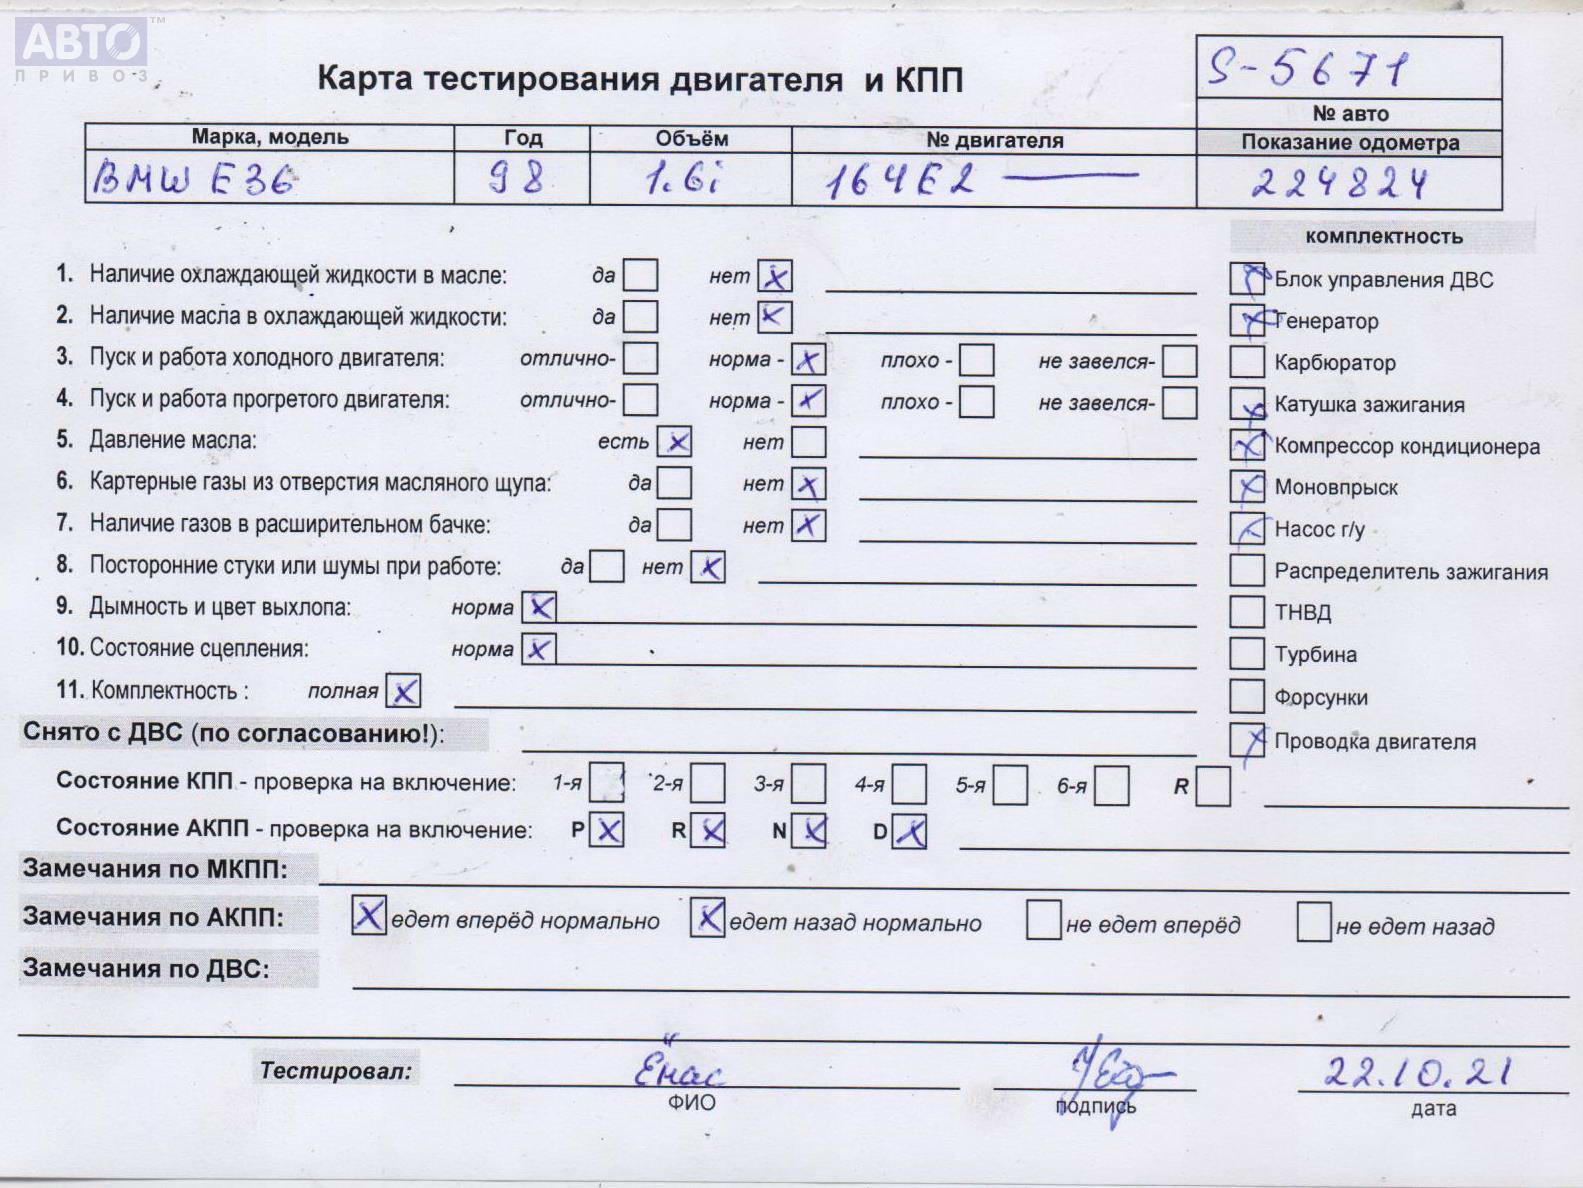 АВТО™
ПРИВОЗ
Карта тестирования двигателя и КПП
S-5671
№ авто
Марка, модель Год Объём № двигателя Показание одометра
BMW E36 98 1.6i 164E2 — 224824
комплектность
1. Наличие охлаждающей жидкости в масле: да нет X
2. Наличие масла в охлаждающей жидкости: да нет X
3. Пуск и работа холодного двигателя: отлично- норма - X плохо - не завелся-
4. Пуск и работа прогретого двигателя: отлично- норма - X плохо - не завелся-
5. Давление масла: есть X нет
6. Картерные газы из отверстия масляного щупа: да нет X
7. Наличие газов в расширительном бачке: да нет X
8. Посторонние стуки или шумы при работе: да нет X
9. Дымность и цвет выхлопа: норма X
10. Состояние сцепления: норма X
11. Комплектность : полная X
X Блок управления ДВС
X Генератор
Карбюратор
X Катушка зажигания
X Компрессор кондиционера
X Моновпрыск
X Насос г/у
Распределитель зажигания
ТНВД
Турбина
Форсунки
X Проводка двигателя
Снято с ДВС (по согласованию!):
Состояние КПП - проверка на включение: 1-я 2-я 3-я 4-я 5-я 6-я R
Состояние АКПП - проверка на включение: P X R X N X D X
Замечания по МКПП:
Замечания по АКПП: X едет вперёд нормально X едет назад нормально не едет вперёд не едет назад
Замечания по ДВС:
Тестировал: Ёнас 22.10.21
ФИО подпись дата